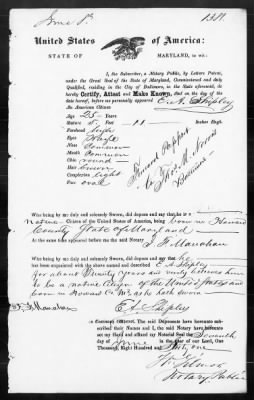 June 7th
1381.
United States of America:
STATE OF MARYLAND, to wit:
I, the Subscriber, a Notary Public, by Letters Patent,
under the Great Seal of the State of Maryland, Commissioned and duly
Qualified, residing in the City of Baltimore, in the State aforesaid, do
hereby Certify, Attest and Make Known, that on the day of the
date hereof, before me personally appeared E. A. Shipley
An American Citizen
Age 25 Years
Stature 5 Feet 11 Inches Engl.
Forehead high
Eyes
Nose Common
Mouth Common
Chin round
Hair brown
Complexion light
Face oval
Forward Passport
to Thos. M. Norris
Baltimore
Who being by me duly and solemnly Sworn, did depose and say that he is a
native Citizen of the United States of America, being born in Howard
County State of Maryland
At the same time appeared before me the said Notary J. F. Manahan
Who being by me duly and solemnly Sworn, did depose and say that he
has been acquainted with the above named and described E A Shipley
for about twenty years and verily believes him
to be a native citizen of the United States and
born in Howard Co Md as he hath sworn
E. A. Shipley
J. F. Manahan
In Testimony Whereof, The said Deponents have hereunto sub-
scribed their Names and I, the said Notary have hereunto set
my Hand and affixed my Notarial Seal the Seventh
day of June in the year of our Lord, One
Thousand, Eight Hundred and Sixty one
Notary Public